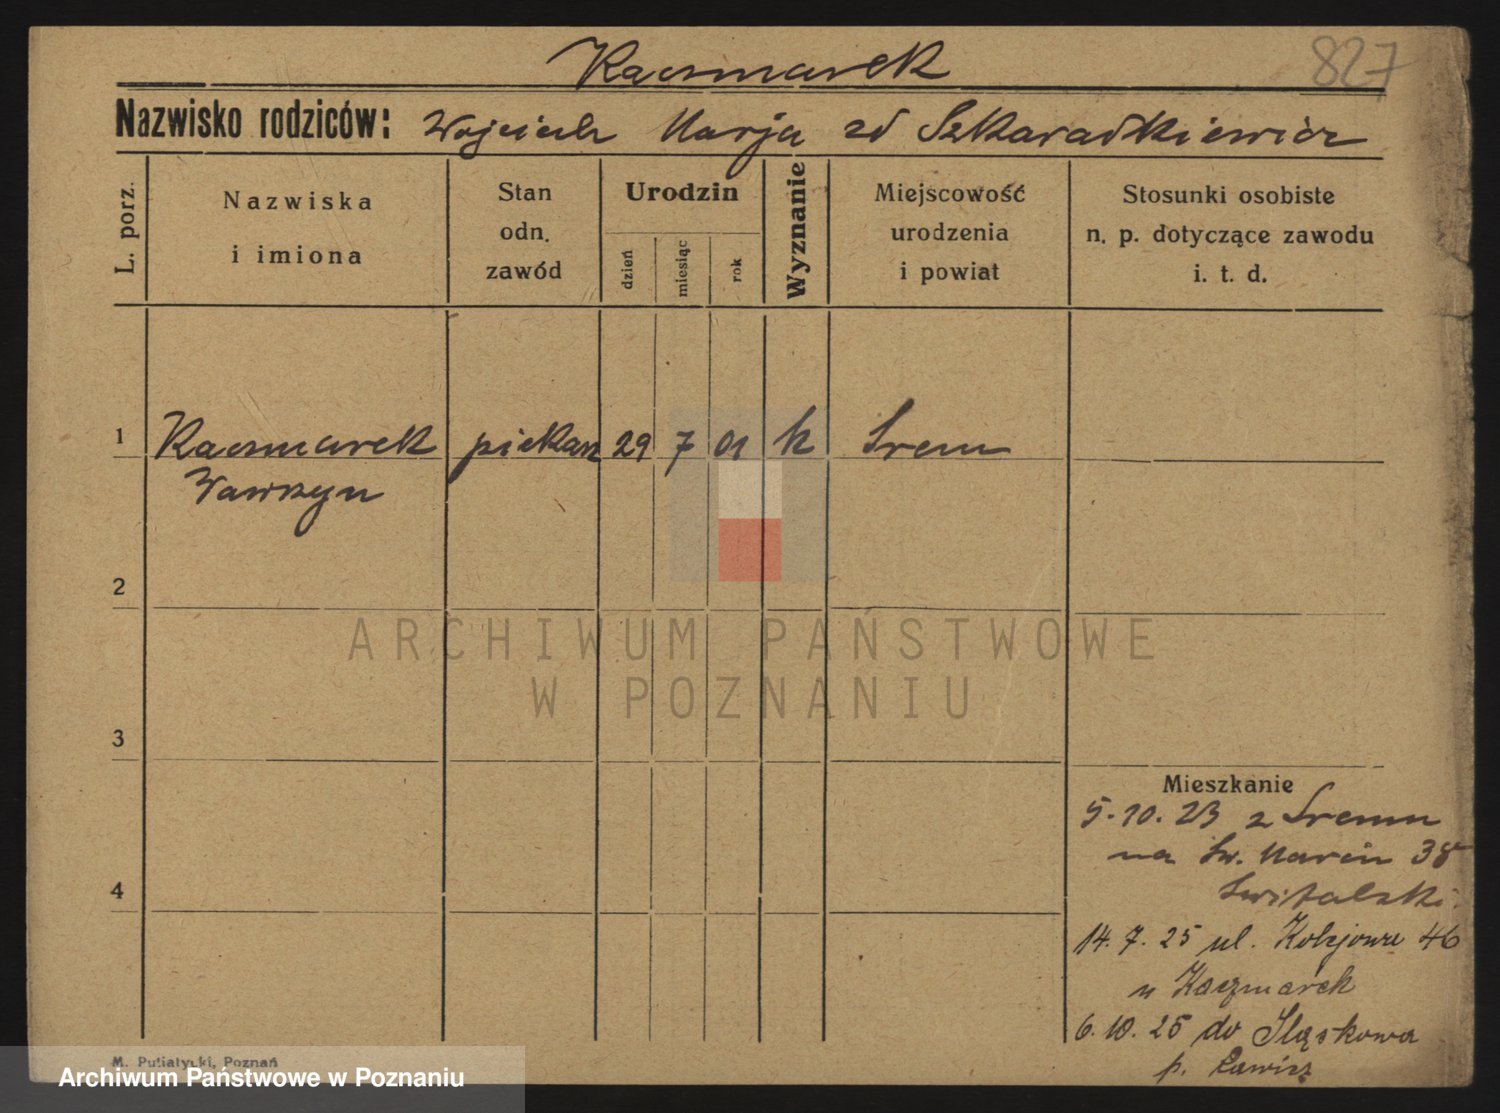 Kaczmarek
827
Nazwisko rodziców: Wojciech Marja zd Szkaradkiewicz
L. porz.
Nazwiska
i imiona
Stan
odn.
zawód
Urodzin
dzień
miesiąc
rok
Wyznanie
Miejscowość
urodzenia
i powiat
Stosunki osobiste
n. p. dotyczące zawodu
i. t. d.
1 Kaczmarek piekarz 29 7 01 k Srem
Wawrzyn
2
3
4
ARCHIWUM PAŃSTWOWE
W POZNANIU
Mieszkanie
5.10.23 z Sremu
na Sw. Marcin 38
Switalski.
14.7.25 ul. Kolejowa 46
u Kaczmarek
6.10.25 do
p.
M. Putiatycki, Poznań
Archiwum Państwowe w Poznaniu